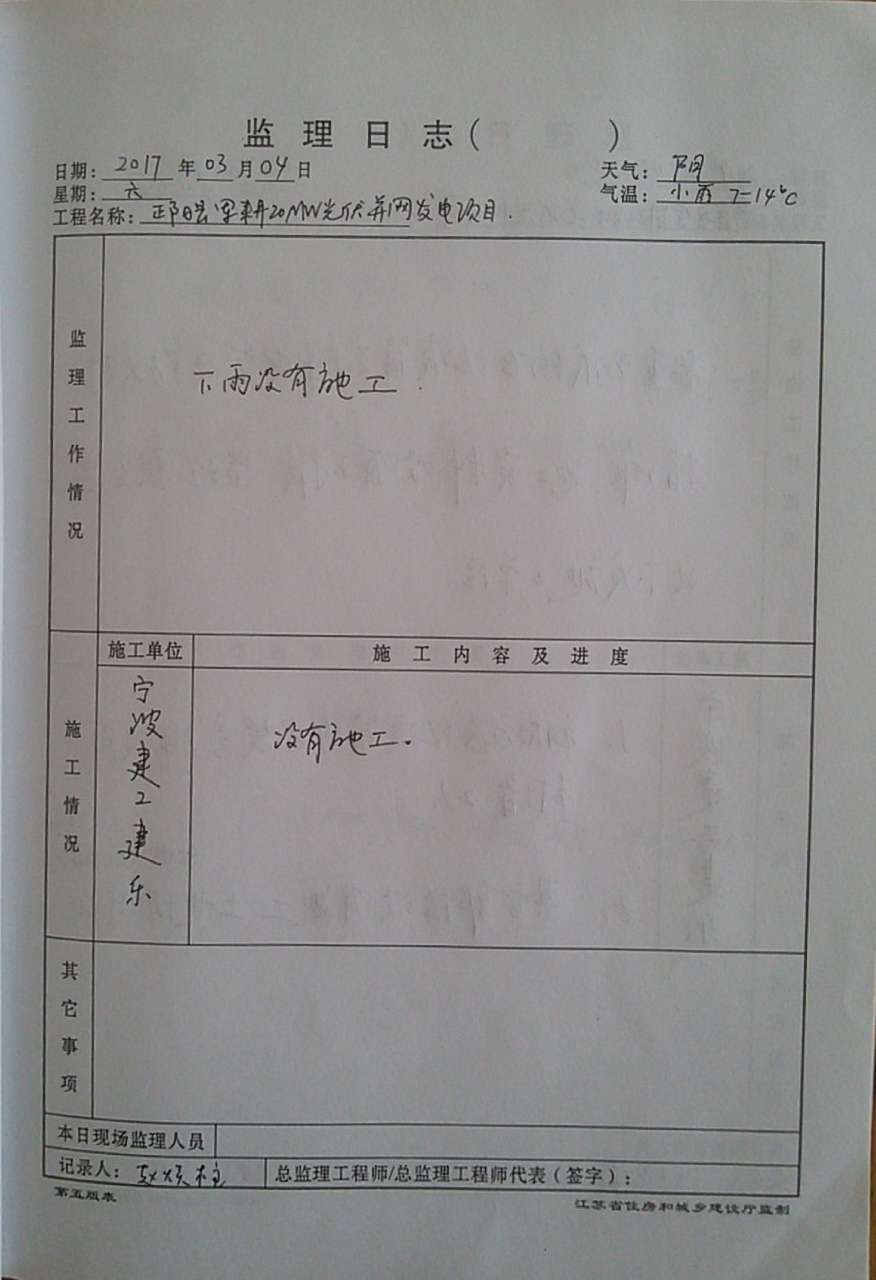 监理日志（ ）
日期：2017年03月04日 天气：阴
星期：六 气温：小雨 7-14℃
工程名称：耕20MW光伏并网发电项目.
监理工作情况
下雨没有施工.
施工情况
施工单位 施工内容及进度
宁波建工建乐
没有施工。
其它事项
本日现场监理人员
记录人：赵 总监理工程师/总监理工程师代表（签字）：
第五版表 江苏省住房和城乡建设厅监制